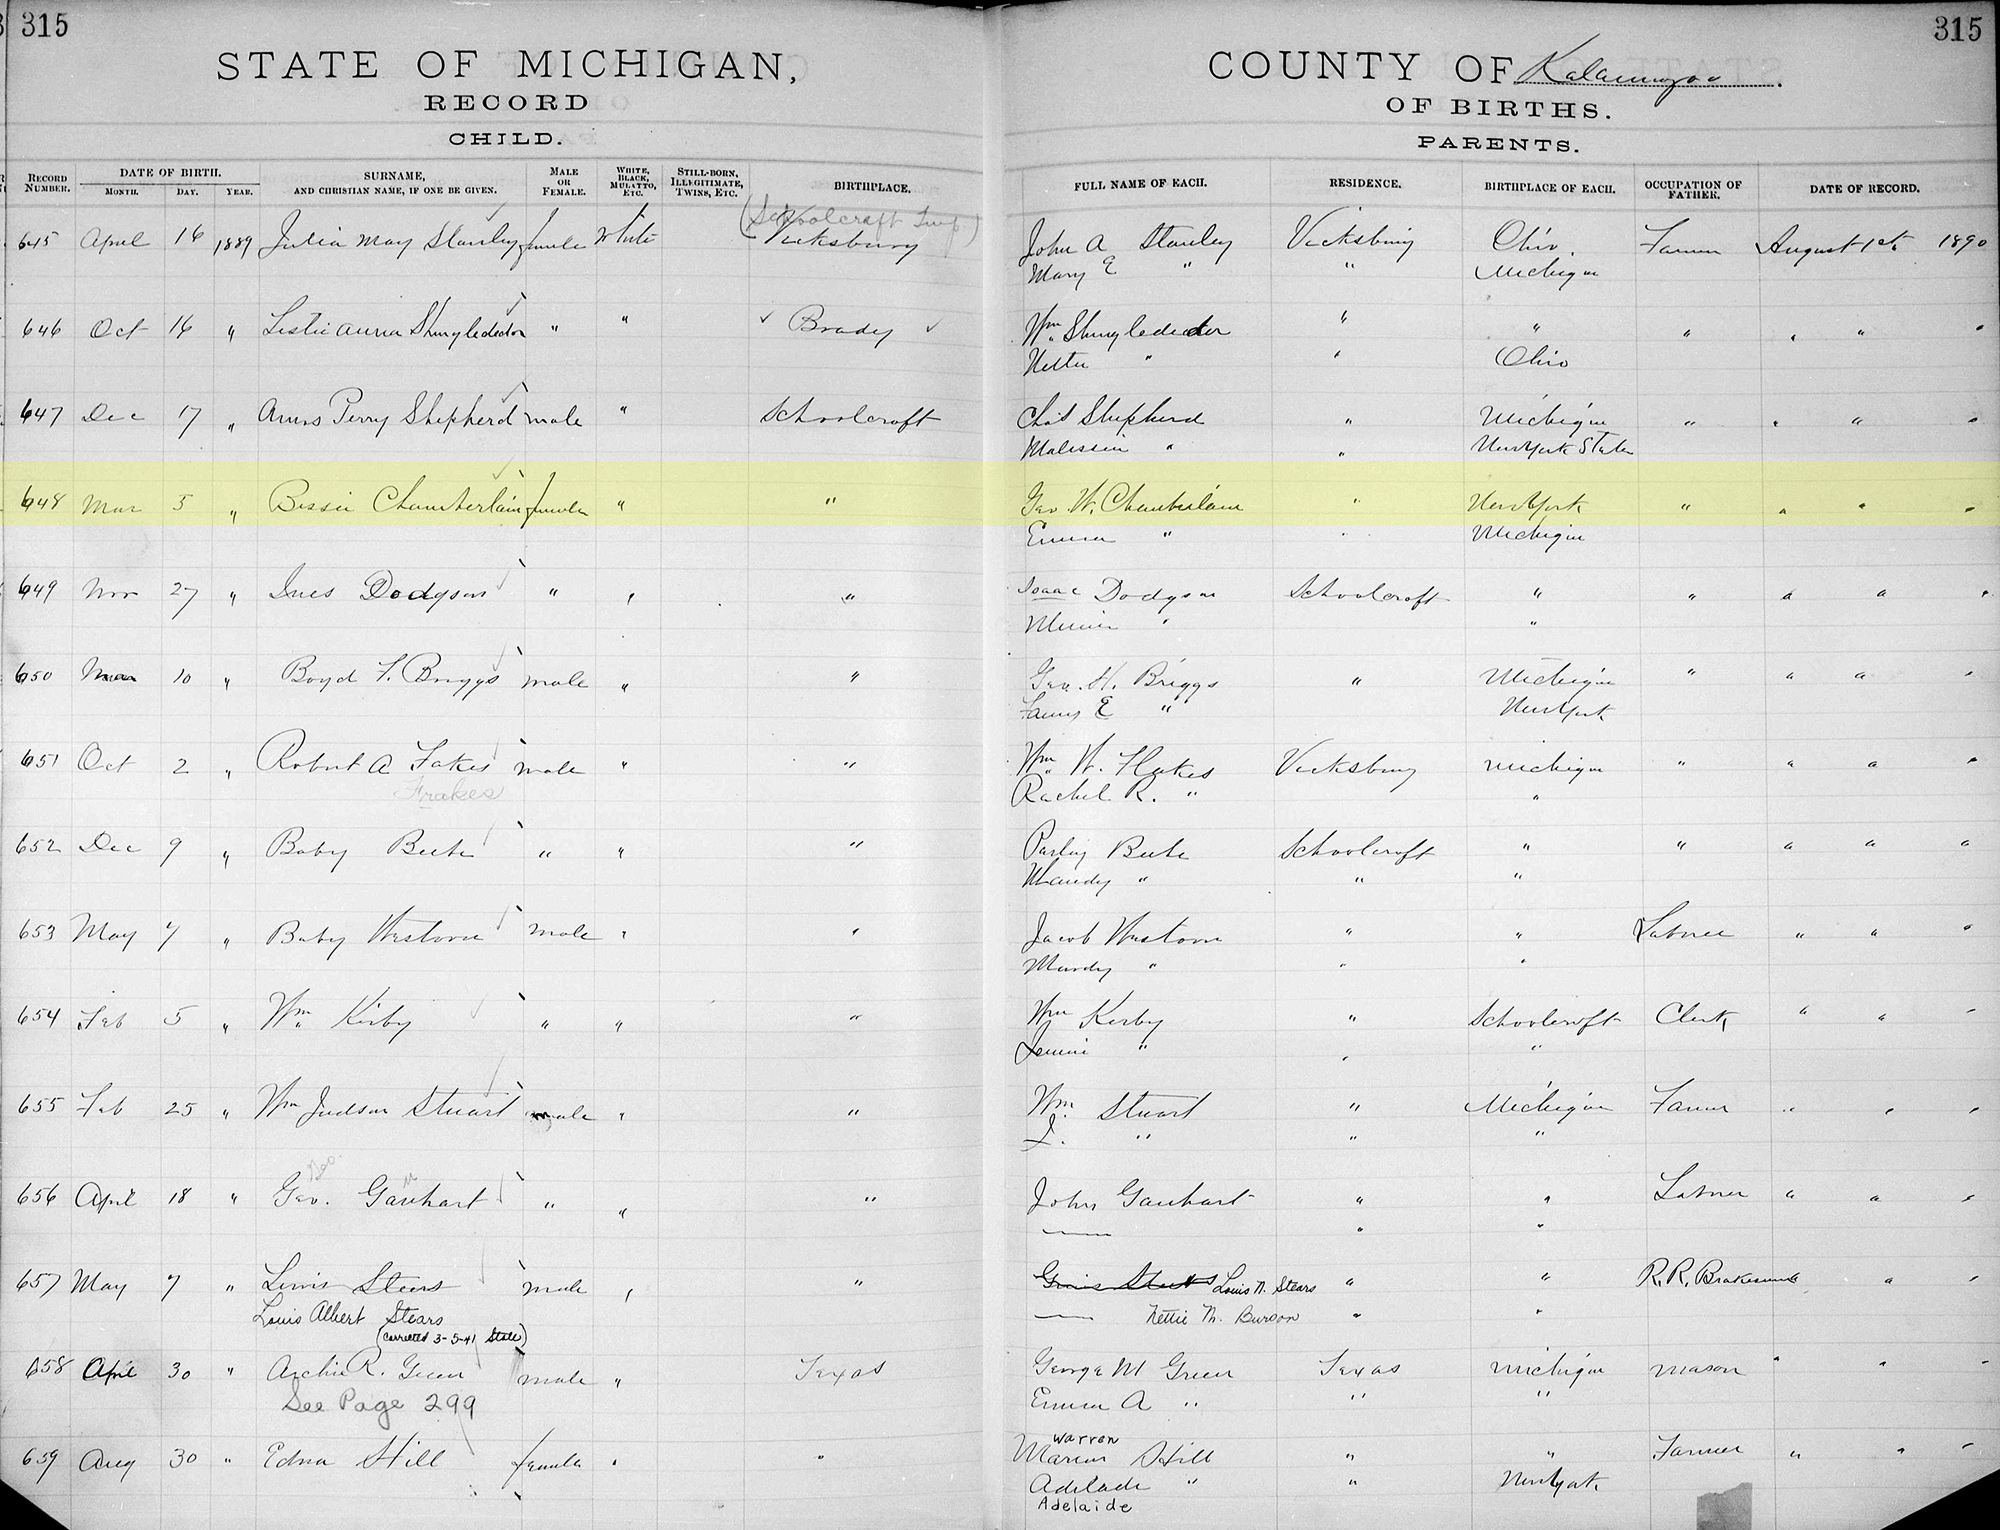 315
315
STATE OF MICHIGAN,
COUNTY OF Kalamazoo.
RECORD
OF BIRTHS.
CHILD.
PARENTS.
RECORD NUMBER. DATE OF BIRTH. MONTH. DAY. YEAR. SURNAME, AND CHRISTIAN NAME, IF ONE BE GIVEN. MALE OR FEMALE. WHITE, BLACK, MULATTO, ETC. STILL-BORN, ILLEGITIMATE, TWINS, ETC. BIRTHPLACE. FULL NAME OF EACH. RESIDENCE. BIRTHPLACE OF EACH. OCCUPATION OF FATHER. DATE OF RECORD.
(Schoolcraft Twp)
645 April 16 1889 Julia May Stanley female White Vicksburg John A Stanley Vicksburg Ohio Farmer August 1st 1890
Mary E " " Michigan
646 Oct 16 " " " Brady Wm " " " " " "
" " Ohio
647 Dec 17 " Amos Perry Shepherd male " Schoolcraft Chas Shepherd " Michigan " " " "
" " New York State
648 Mar 5 " Bessie Chamberlain female " " Geo W. Chamberlain " New York " " " "
Emma " " Michigan
649 Nov 27 " Ines Dodgson " " " Isaac Dodgson Schoolcraft " " " " "
" "
650 10 " Boyd F. Briggs male " " Geo. H. Briggs " Michigan " " " "
E " New York
651 Oct 2 " Robert A Fakes male " " Wm W. Flakes Vicksburg Michigan " " " "
Frakes
Rachel R. " "
652 Dec 9 " Baby Beebe " " " Beebe Schoolcraft " " " " "
Mandy " " "
653 May 7 " Baby male " " Jacob " " Laborer " " "
" " "
654 Feb 5 " Wm Kirby " " " Wm Kerby " Schoolcraft Clerk " " "
" " "
655 Feb 25 " Wm Judson Stuart male " " Wm. Stuart " Michigan Farmer " " "
" " "
Geo.
656 April 18 " Geo. Ganhart " " " John Ganhart " " Laborer " " "
" "
657 May 7 " Lewis Stears male " " Louis N. Stears " " R.R. Brakeman " "
Louis Albert Stears
Nettie M. Burson " "
(Corrected 3-5-41 State)
658 April 30 " Archie R. Green male " Texas George M Green Texas Michigan Mason " " "
See Page 299
Emma A " " "
Warren
659 Aug 30 " Edna Hill female " " Marion Hill " " Farmer " " "
Adelade " " New York
Adelaide